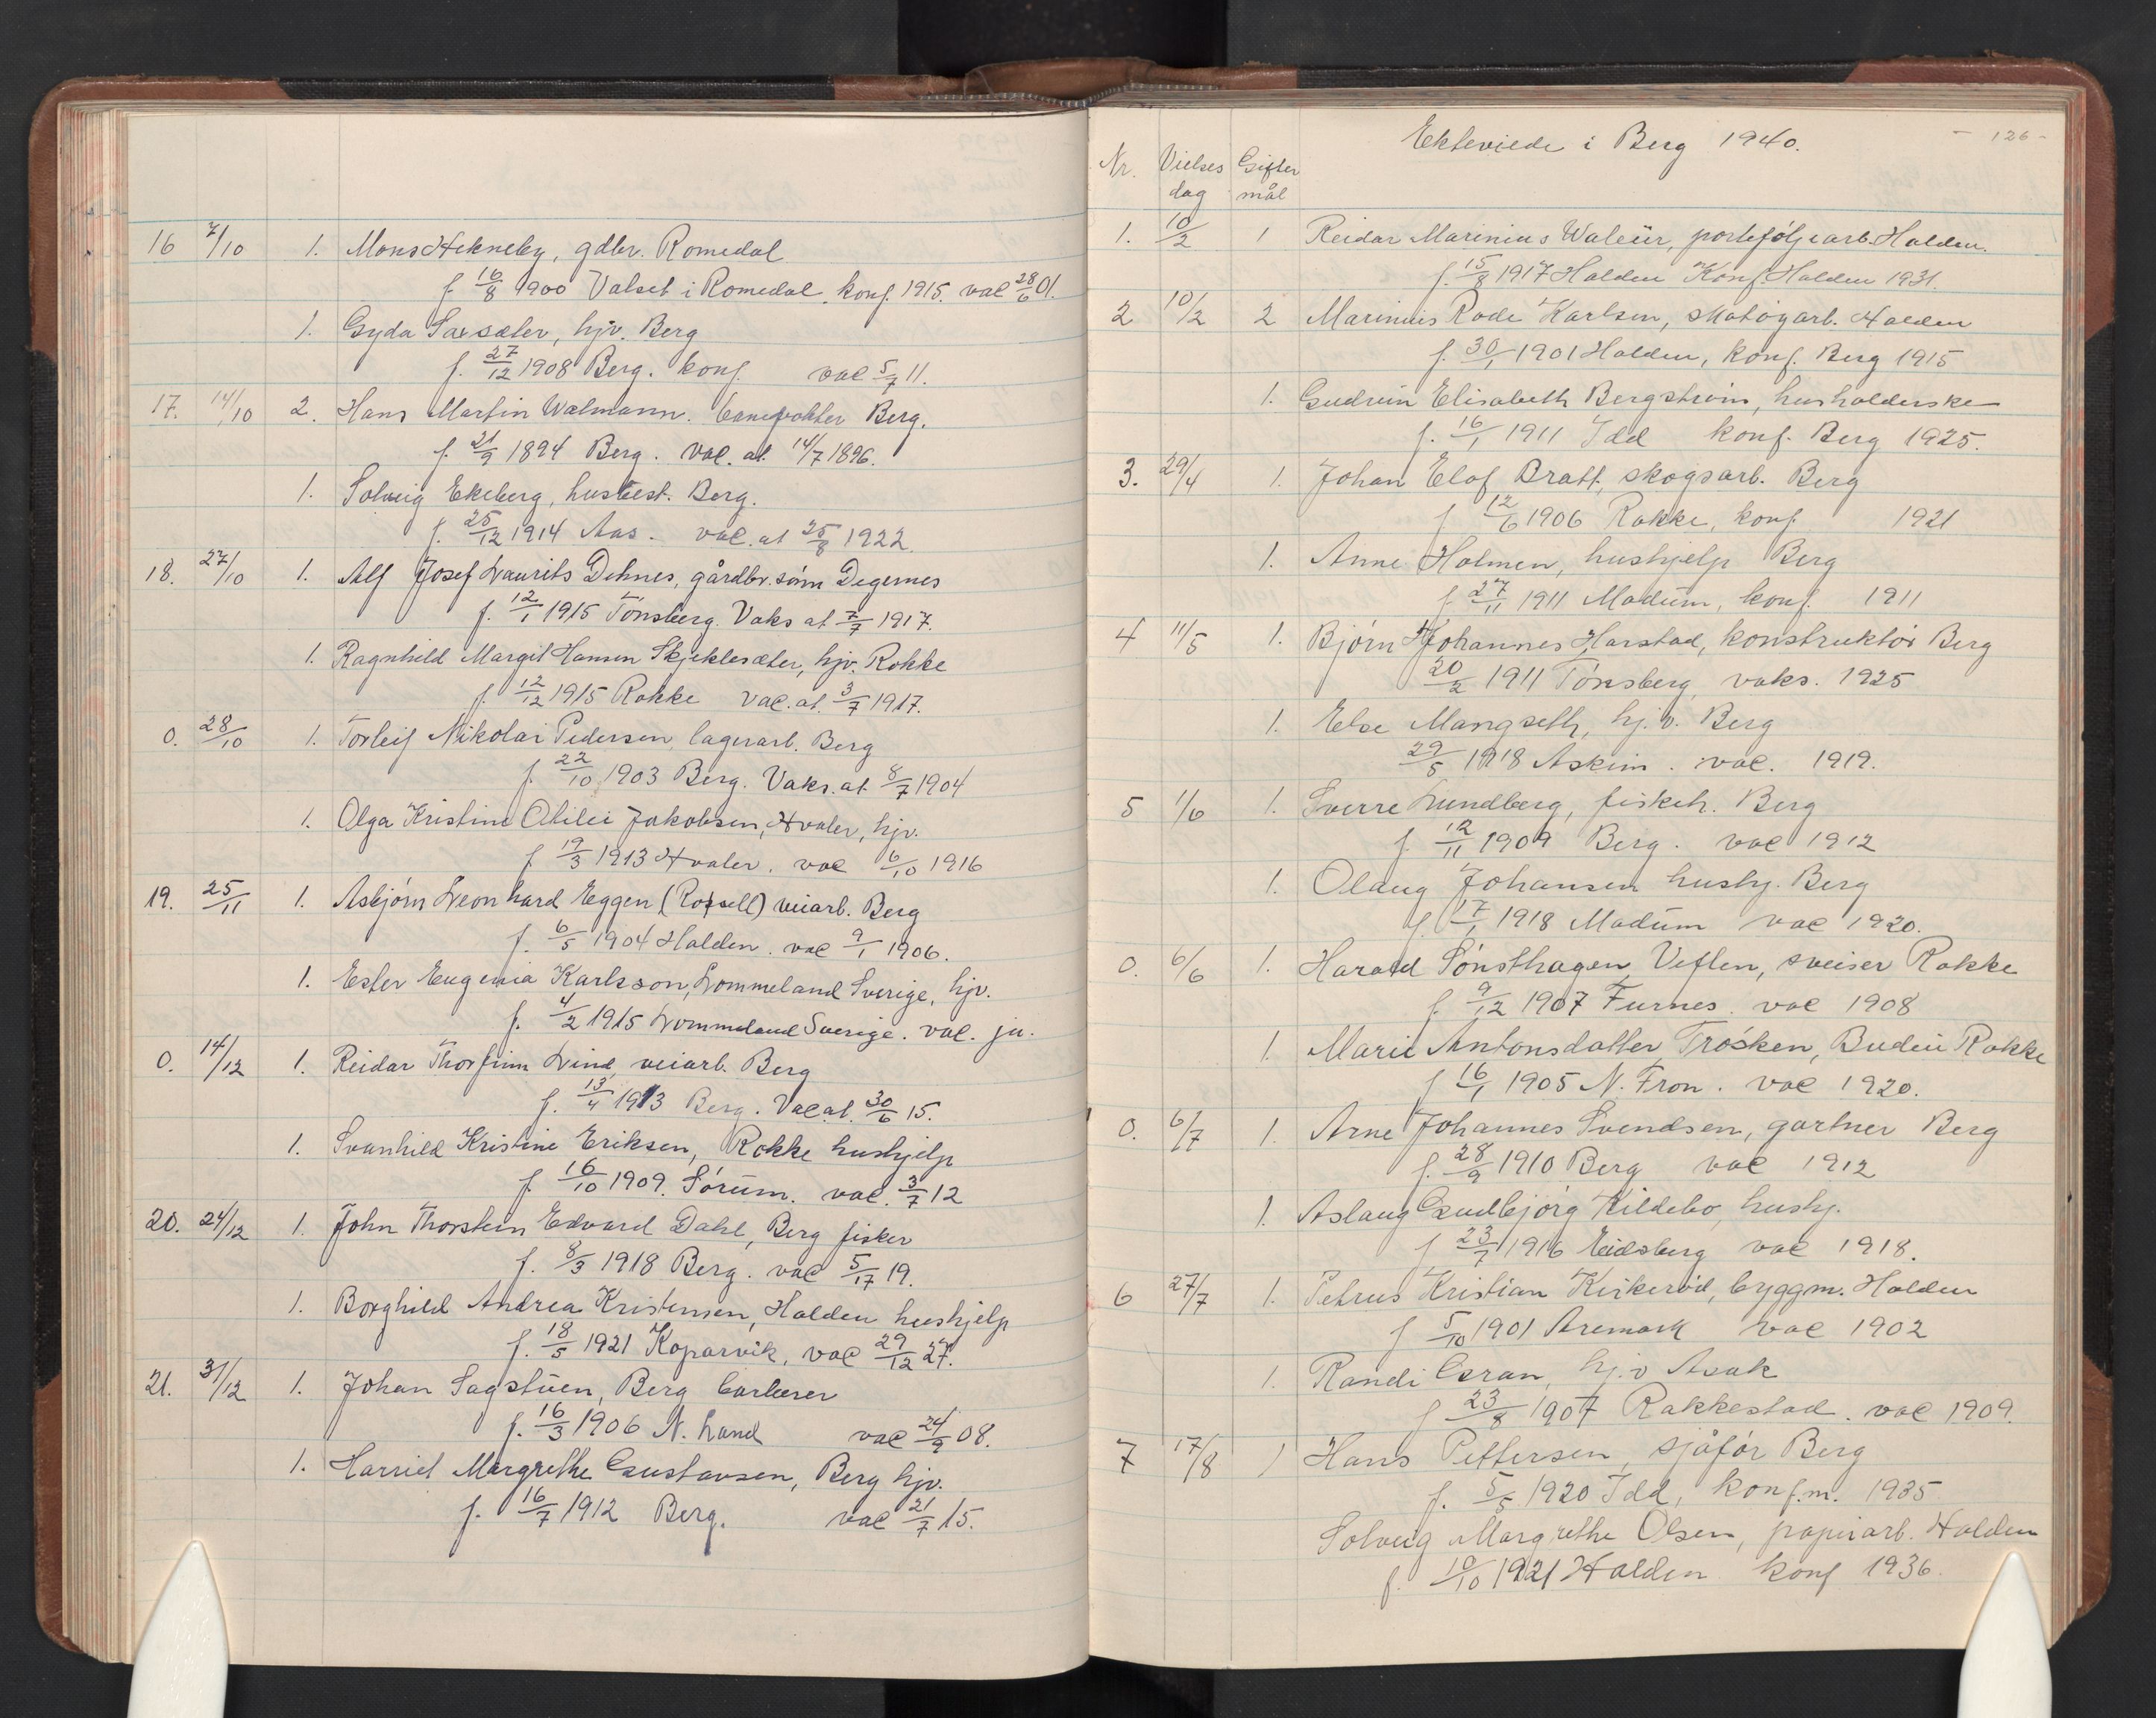 16 7/10 1. Mons Hekneby, gdbr. Romedal
f. 16/8 1900 Valset i Romedal. konf. 1915. vac 28/6 01.
1. Gyda Saxsæter, hjv. Berg
f. 27/12 1908 Berg. konf. vac 5/7 11.
17. 14/10 2. Hans Martin Walmann. banevokter Berg.
f. 21/9 1894 Berg. vac. at 14/7 1896.
1. Solveig Ekeberg, husbest. Berg.
f. 25/12 1914 Aas. vac. at 25/8 1922.
18. 27/10 1. Alf Josef Laurits Dehnes, gårdbr. sønn Degernes
f. 12/1 1915 Tønsberg. Vaks at 7/7 1917.
1. Ragnhild Margit Hansen Skjeklesæter, hjv. Rokke
f. 12/12 1915 Rokke vac. at. 3/7 1917.
0. 28/10 1. Torleif Nikolai Pedersen, lagerarb. Berg
f. 22/10 1903 Berg. Vaks. at 8/7 1904
1. Olga Kristine Otilie Jakobsen, Hvaler, hjv.
f. 19/3 1913 Hvaler. vac 6/10 1916
19. 25/11 1. Asbjørn Leonhard Eggen (Rossell) veiarb. Berg
f. 6/5 1904 Halden. vac 9/1 1906.
1. Ester Eugenia Karlsson, Lommeland Sverige, hjv.
f. 4/2 1915 Lommeland Sverige. vac. ja.
0. 14/12 1. Reidar Thorfinn Lind, veiarb. Berg
f. 13/4 1913 Berg. Vac. at. 30/6 15.
1. Svanhild Kristine Eriksen, Rokke hushjelp
f. 16/10 1909. Sørum. vac. 3/7 12
20. 24/12 1. John Thorstein Edvard Dahl, Berg fisker
f. 8/3 1918 Berg. vac 5/17 19.
1. Borghild Andrea Kristensen, Halden hushjelp
f. 18/5 1921 Koparvik, vac 29/12 27.
21. 31/12 1. Johan Sagstuen, Berg barberer
f. 16/3 1906 N. Land vac 24/9 08.
1. Harriet Margrethe Gustavsen, Berg hjv.
f. 16/7 1912 Berg. vac 21/7 15.
Ekteviede i Berg 1940. - 126 -
Nr. Vielses dag Gifter mål
1. 10/2 1 Reidar Marinius Waleur, porteføljearb. Halden.
f. 15/8 1917 Halden Konf. Halden 1931.
2 10/2 2 Marinius Rode Karlsen, skotøyarb. Halden
f. 30/1 1901 Halden, konf. Berg 1915
1. Gudrun Elisabeth Bergstrøm, husholderske
f. 16/1 1911 Idd konf. Berg 1925.
3. 29/4 1. Johan Elof Bratt, skogsarb. Berg
f 12/6 1906 Rokke, konf. 1921
1. Anne Holmen, hushjelp Berg
f 27/11 1911 Modum, konf. 1911
4 11/5 1. Bjørn Johannes Harstad, konstruktør Berg
20/2 1911 Tønsberg, vaks. 1925
1. Else Mangseth, hj.v. Berg
29/5 1918 Askim. vac. 1919.
5 1/6 1. Sverre Lundberg, fiskeh. Berg
f. 12/11 1909 Berg. vac 1912
1. Olaug Johansen hushj. Berg
f. 17/1 1918 Modum vac 1920.
0. 6/6 1. Harald Sønsthagen Veflen, sveiser Rokke
f. 9/12 1907 Furnes. vac 1908
1. Marie Antonsdatter Trøsken, Budeie Rokke
f 16/1 1905 N. Fron. vac 1920.
0. 6/7 1. Arne Johannes Svendsen, gartner Berg
f. 28/9 1910 Berg vac 1912
1. Aslaug Gudbjørg Kildebo, hushj.
f 23/7 1916 Eidsberg vac 1918.
6 27/7 1. Petrus Kristian Kirkerød, byggm. Halden
f 5/10 1901 Aremark vac 1902
1. Randi Gran, hj.v Asak
f 23/8 1907 Rakkestad. vac 1909.
7 17/8 1 Hans Pettersen, sjåfør Berg
f. 5/5 1920 Idd, konf.m. 1935
Solveig Margrethe Olsen, papirarb. Halden
f. 10/10 1921 Halden konf 1936.